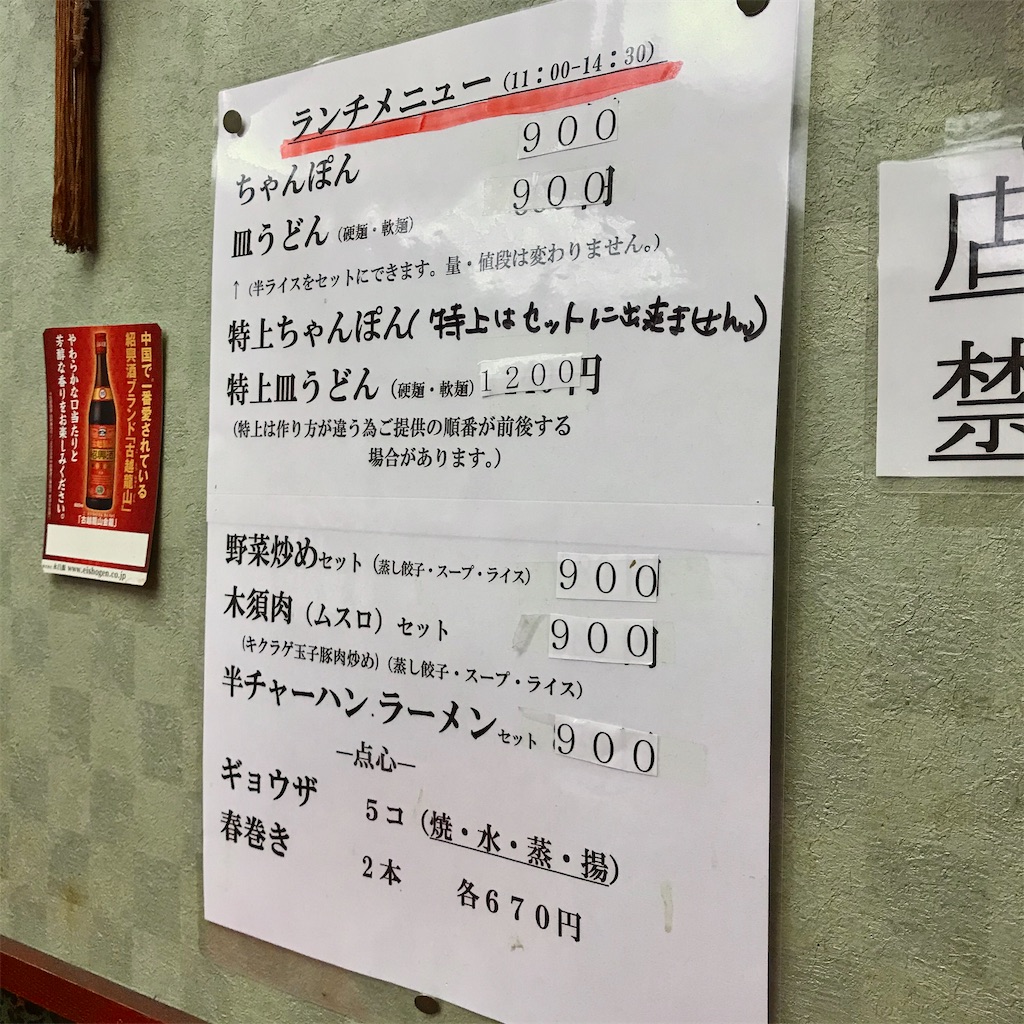 ランチメニュー(11:00-14:30)
ちゃんぽん 900
皿うどん(硬麺・軟麺) 900円
↑(半ライスをセットにできます。量・値段は変わりません。)
特上ちゃんぽん(特上はセットに出来ません)
特上皿うどん(硬麺・軟麺) 1200円
(特上は作り方が違う為ご提供の順番が前後する
場合があります。)
野菜炒めセット(蒸し餃子・スープ・ライス) 900
木須肉(ムスロ)セット 900
(キクラゲ玉子豚肉炒め)(蒸し餃子・スープ・ライス)
半チャーハン.ラーメンセット 900
―点心―
ギョウザ 5コ(焼・水・蒸・揚)
春巻き 2本 各670円
中国で一番愛されている
紹興酒ブランド「古越龍山」
やわらかな口当たりと
芳醇な香りをお楽しみください。
「古越龍山金龍」
www.eishogen.co.jp
店
禁